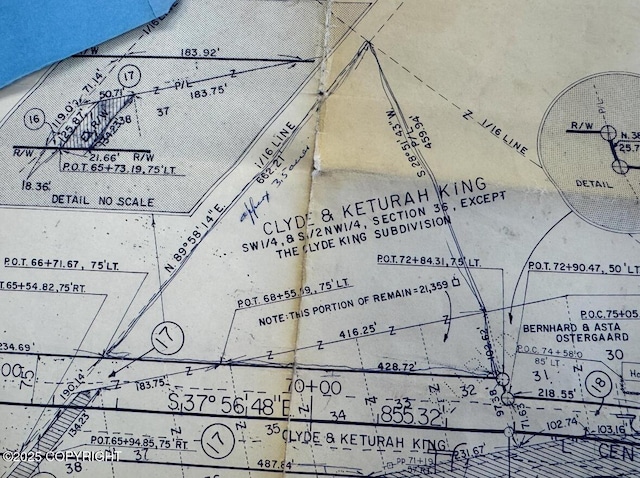 183.92'
R/W
1/16 LINE
17
119.07'
71.14'
50.71'
P/L
Z
183.75'
37
16
125.87'
38
R/W
21.66'
R/W
P.O.T. 65+73.19, 75' LT.
18.36'
DETAIL NO SCALE
1/16 LINE
662.21'
approx 3.5 acres
N 89°58'14"E
S 28°51'43"W
459.94'
P/L
1/16 LINE
R/W
DETAIL
CLYDE & KETURAH KING
SW1/4, & S1/2 NW1/4, SECTION 36, EXCEPT
THE CLYDE KING SUBDIVISION
P.O.T. 66+71.67, 75' LT.
T. 65+54.82, 75' RT.
P.O.T. 68+55.19, 75' LT.
P.O.T. 72+84.31, 75' LT.
P.O.T. 72+90.47, 50' LT.
NOTE: THIS PORTION OF REMAIN = 21,359
P.O.C. 75+05
BERNHARD & ASTA
OSTERGAARD
P.O.C. 74+58.0
85' LT.
30
31
17
234.69'
416.25'
428.72'
190.14'
183.75'
70+00
32
218.55'
18
S 37°56'48"E
34
855.32'
33
102.74'
103.16'
134.23'
P.O.T. 65+94.85, 75' RT.
17
35
CLYDE & KETURAH KING
"L"
CEN
37
38
487.84'
PP 71+19
231.67'
©2025 COPYRIGHT